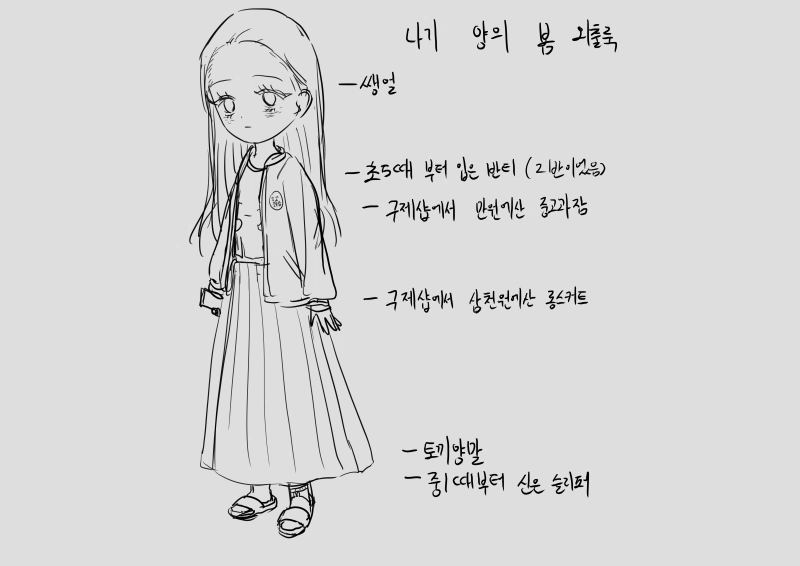 나기 양의 봄 외출룩
ㅡ쌩얼
ㅡ초5때 부터 입은 반티 (2반이었음)
ㅡ구제샵에서 만원에산 중고과잠
ㅡ구제샵에서 삼천원에산 롱스커트
ㅡ토끼양말
ㅡ중1때부터 신은 슬리퍼